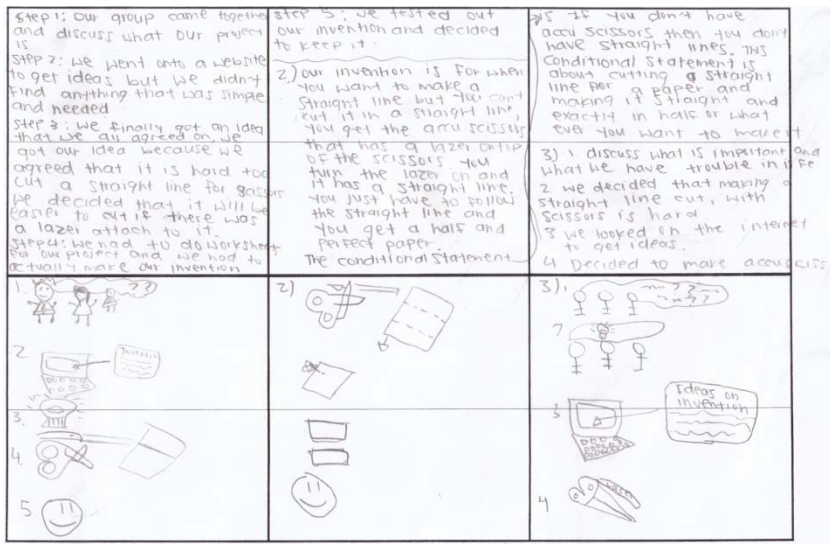 Step 1: our group came together
and discuss what our project
is
Step 2: we went onto a website
to get ideas but we didn't
find anything that was simple
and needed.
Step 3: we finally got an idea
that we all agreed on. We
got our idea because we
agreed that it is hard too
cut a straight line for
we decided that it will be
easier to cut if there was
a lazer attach to it.
Step 4: we had to do worksheets
for our project and we had to
actually make our invention
Step 5: we tested out
our invention and decided
to keep it.
2.) our invention is for when
you want to make a
straight line but you can't
cut it in a straight line,
you get the accu scissors
that has a lazer ontop
of the scissors. you
turn the lazer on and
it has a straight line.
you just have to follow
the straight line and
you get a half and
perfect paper.
The conditional statement
is If you don't have
accu scissors then you don't
have straight lines. This
conditional statement is
about cutting a straight
line for a paper and
making it straight and
exactly in half or what
ever you want to make it
3) 1. discuss what is important and
what we have trouble in life
2 we decided that making a
straight line cut, with
scissors is hard
3 we looked on the internet
to get ideas.
4 Decided to make accusciss
1. ??
2
3.
4.
5
2)
3) 1 ??
2
3 Ideas on
invention
4